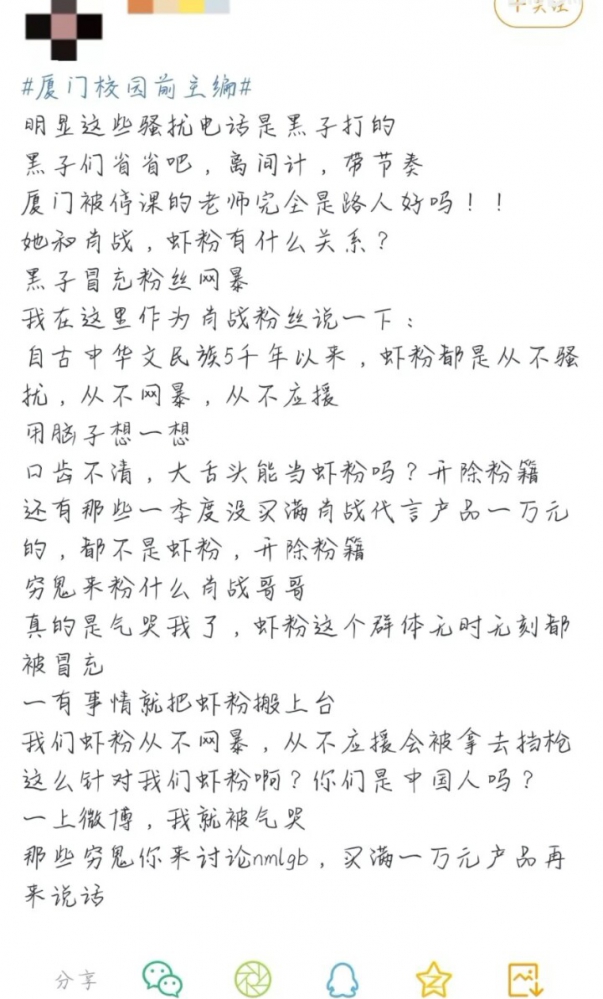 #厦门校园前主编#
明显这些骚扰电话是黑子打的
黑子们省省吧，离间计，带节奏
厦门被停课的老师完全是路人好吗！！
她和肖战，虾粉有什么关系？
黑子冒充粉丝网暴
我在这里作为肖战粉丝说一下：
自古中华文民族5千年以来，虾粉都是从不骚
扰，从不网暴，从不应援
用脑子想一想
口齿不清，大舌头能当虾粉吗？开除粉籍
还有那些一季度没买满肖战代言产品一万元
的，都不是虾粉，开除粉籍
穷鬼来粉什么肖战哥哥
真的是气哭我了，虾粉这个群体无时无刻都
被冒充
一有事情就把虾粉搬上台
我们虾粉从不网暴，从不应援会被拿去挡枪
这么针对我们虾粉啊？你们是中国人吗？
一上微博，我就被气哭
那些穷鬼你来讨论nmlgb，买满一万元产品再
来说话
分享